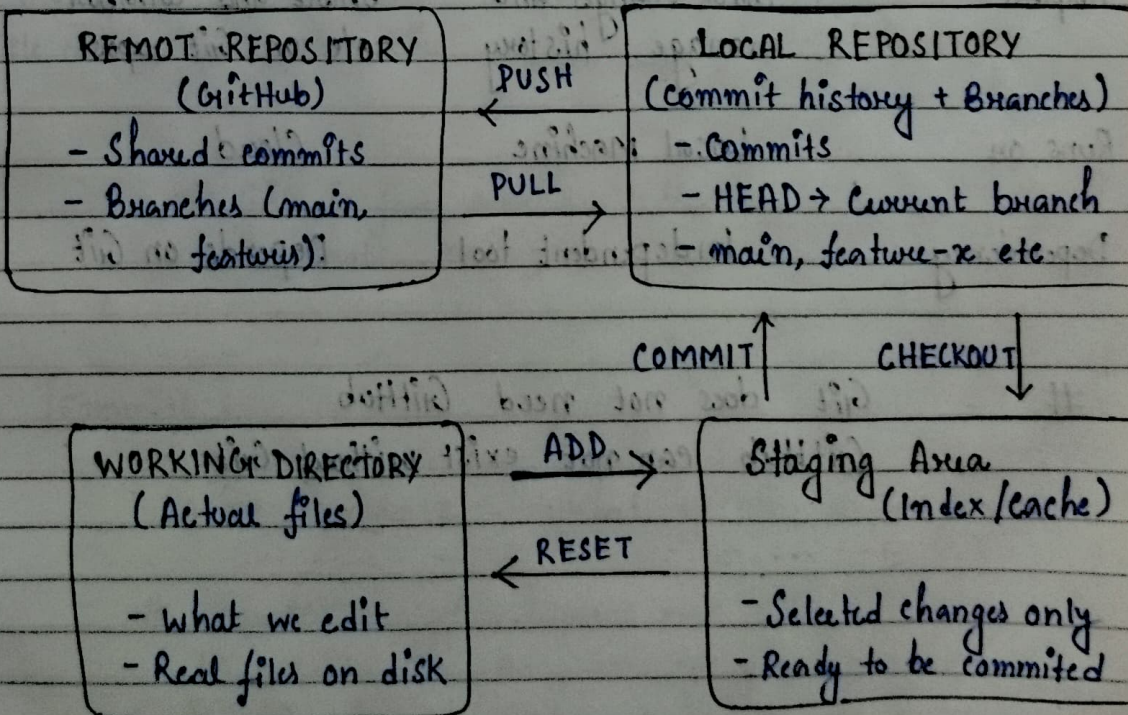 REMOT REPOSITORY
(GitHub)
- Shared commits
- Branches (main,
featuris)
PUSH
PULL
LOCAL REPOSITORY
(commit history + Branches)
- Commits
- HEAD → Current branch
- main, feature-x etc.
COMMIT
CHECKOUT
WORKING DIRECTORY
(Actual files)
- What we edit
- Real files on disk
ADD
RESET
Staging Area
(Index/Cache)
- Selected changes only
- Ready to be commited
Git does not need GitHub